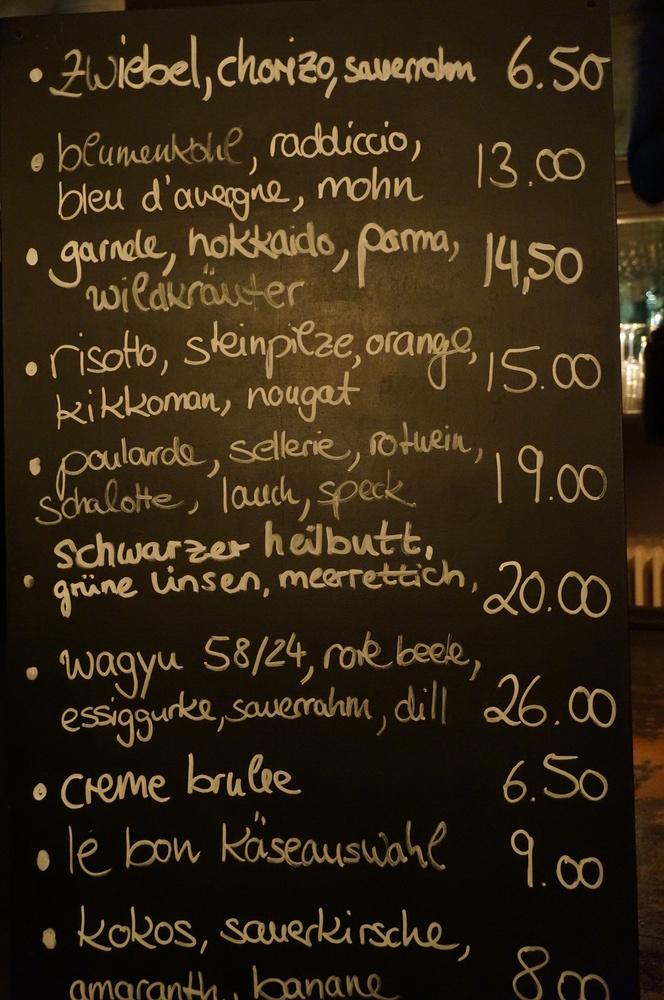 • Zwiebel, chorizo, sauerrahm 6.50
• blumenkohl, raddiccio,
bleu d'avergne, mohn 13.00
• garnele, hokkaido, parma, 14,50
wildkräuter
• risotto, steinpilze, orange,
kikkoman, nougat 15.00
• poularde, sellerie, rotwein,
schalotte, lauch, speck 19.00
schwarzer heilbutt,
• grüne linsen, meerrettich, 20.00
• wagyu 58/24, rote beete,
essiggurke, sauerrahm, dill 26.00
• creme brulee 6.50
• le bon Käseauswahl 9.00
• kokos, sauerkirsche,
amaranth, banane 8.00